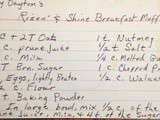 y Dayton's
Risen' & Shine Breakfast Muff
C + 2T Oats 1 t. Nutmeg
c. prune juice 1/2 t. Salt
c. Milk 1/4 c. Malted
T Brn. Sugar 1 c. Chopped
Eggs, lightly Beaten 1/2 c. Walnu
c. Flour
t Baking Powder
In large bowl, mix 1/2 c. of the
ne Juice, Milk, & 4t. of the Sugar